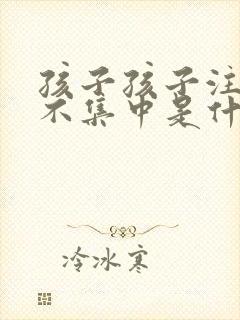 孩子孩子注
不集中是什
冷冰寒